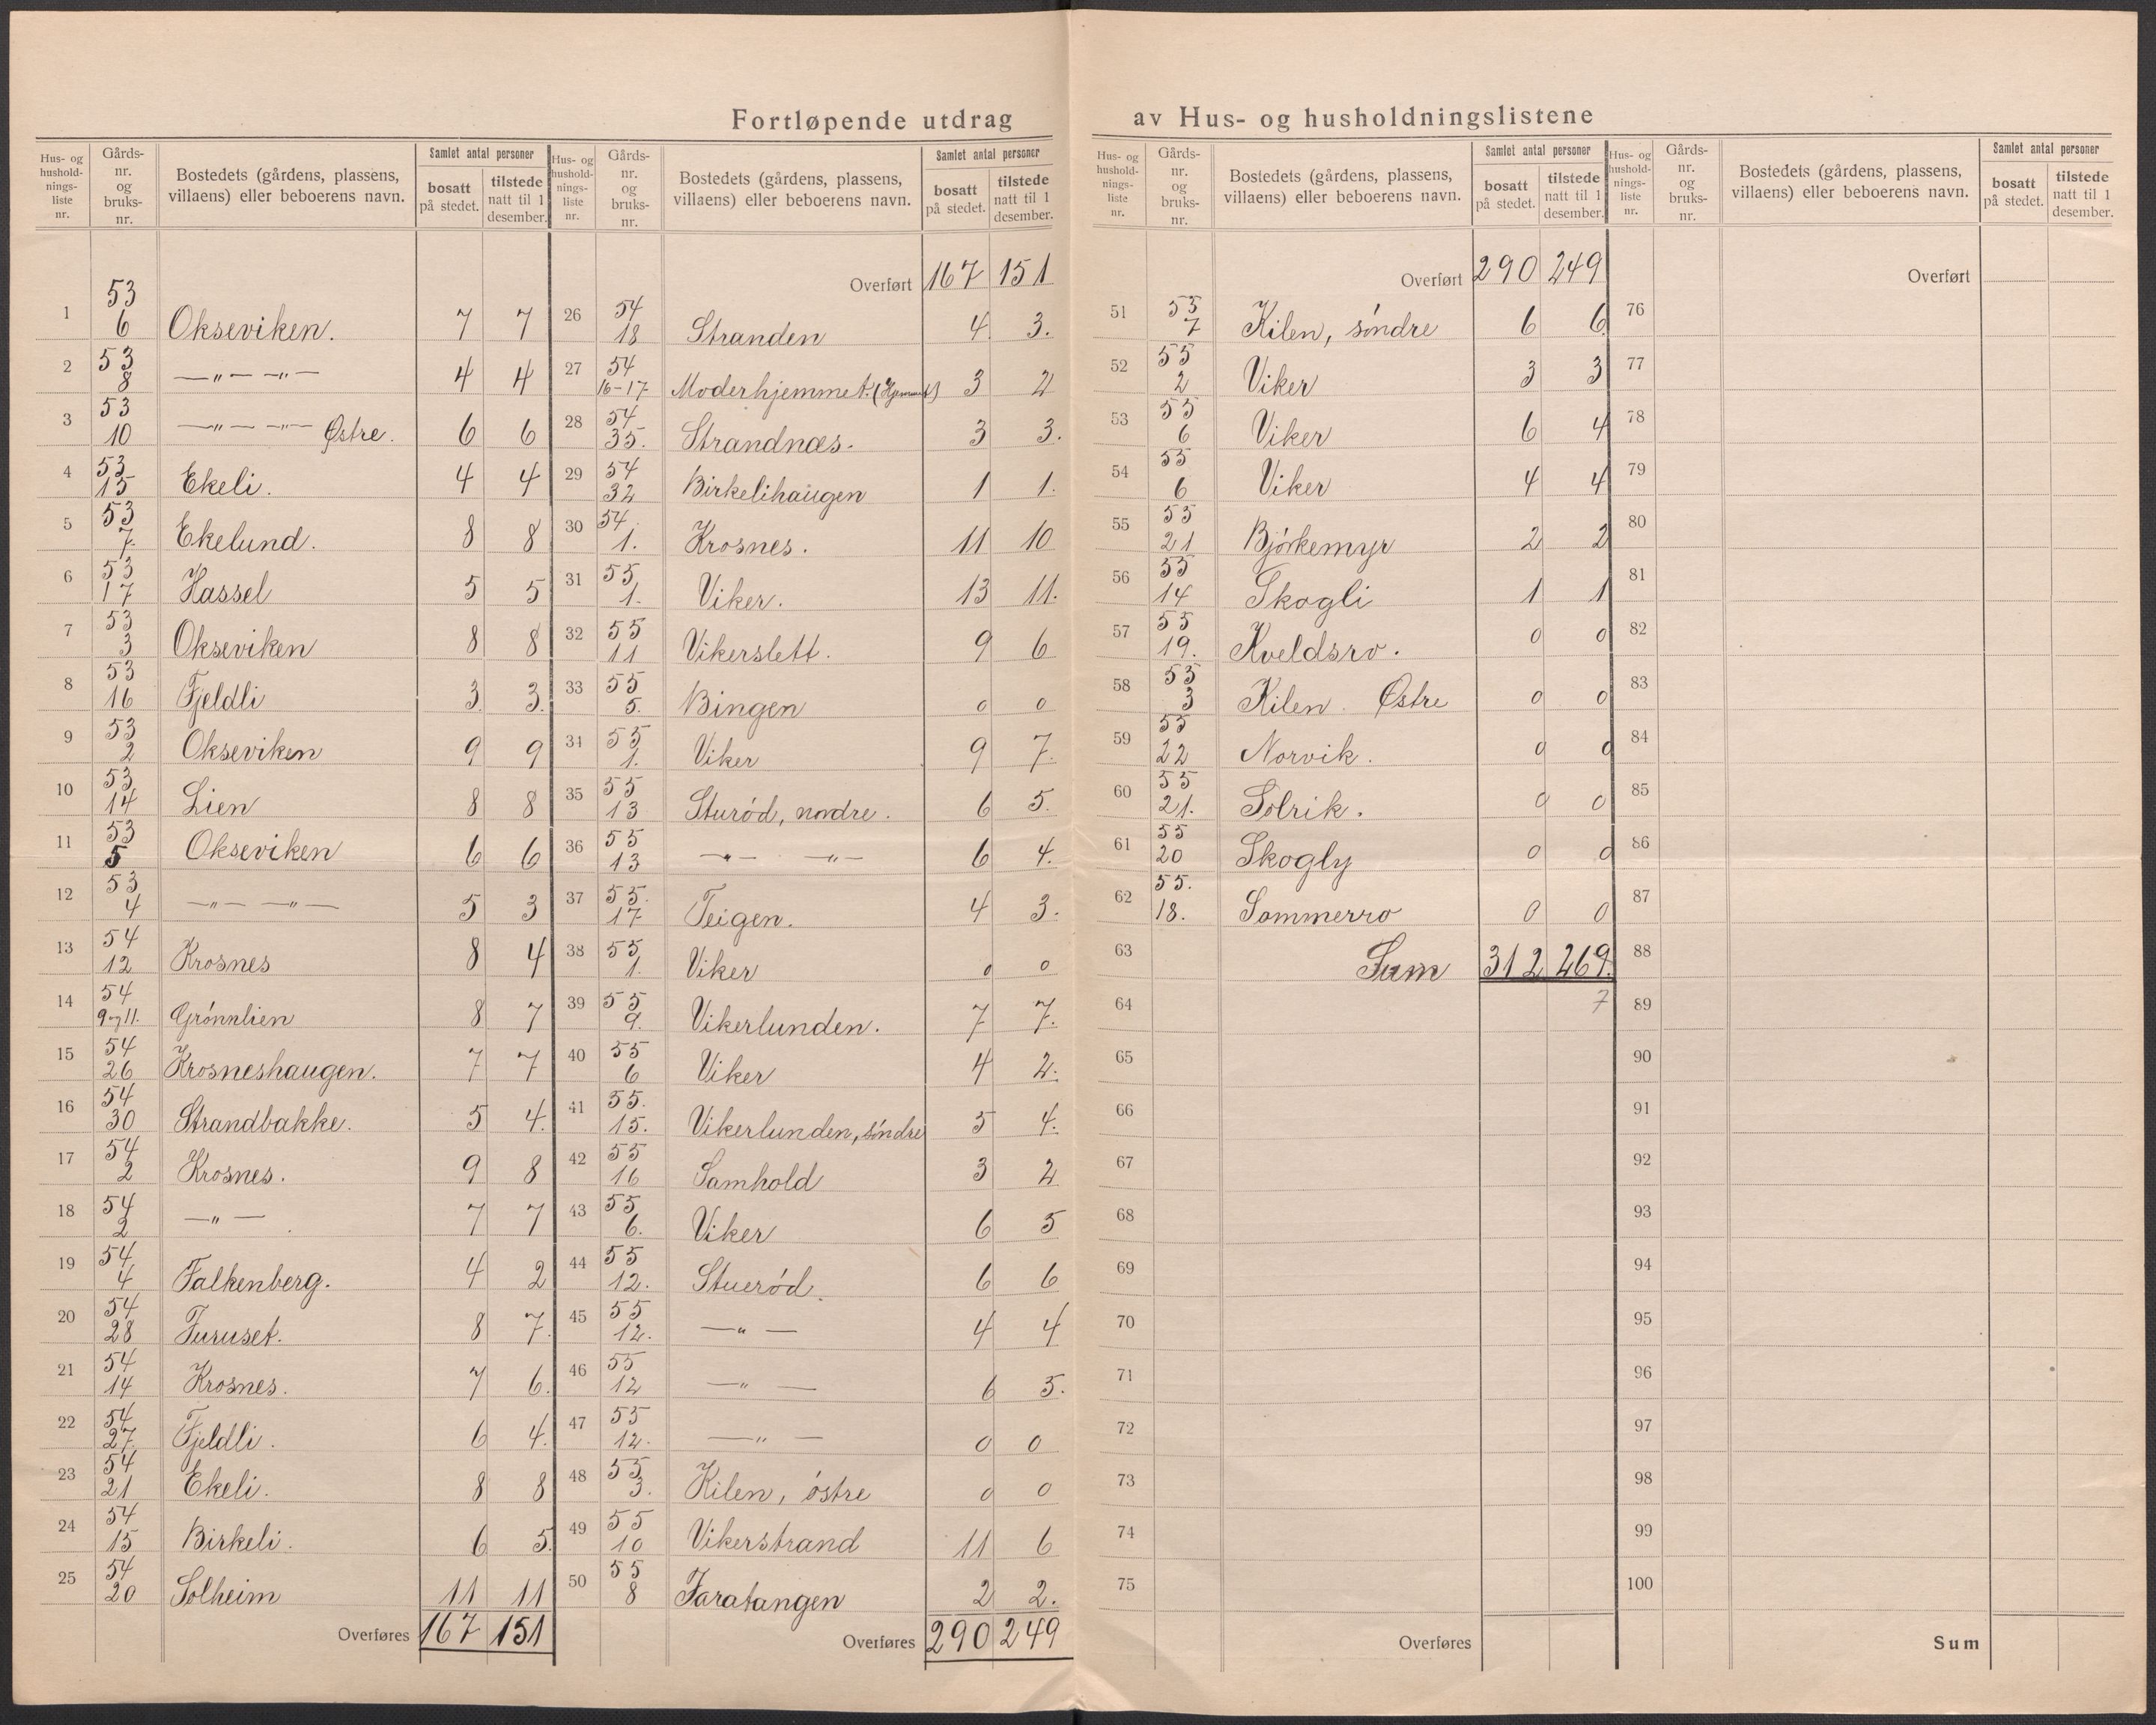 Fortløpende utdrag av Hus- og husholdningslistene
Hus- og hushold-nings-liste nr. | Gårds-nr. og bruks-nr. | Bostedets (gårdens, plassens, villaens) eller beboerens navn. | Samlet antal personer bosatt på stedet. | tilstede natt til 1 desember.
1 | 53 6 | Okseviken. | 7 | 7
2 | 53 8 | —"— —"— | 4 | 4
3 | 53 10 | —"— —"— Østre. | 6 | 6
4 | 53 15 | Ekeli. | 4 | 4
5 | 53 7. | Ekelund. | 8 | 8
6 | 53 17 | Hassel | 5 | 5
7 | 53 3 | Okseviken | 8 | 8
8 | 53 16 | Fjeldli | 3. | 3.
9 | 53 2 | Okseviken | 9 | 9
10 | 53 14 | Lien | 8 | 8
11 | 53 5 | Okseviken | 6 | 6
12 | 53 4 | —"— —"— | 5 | 3
13 | 54 12 | Krosnes | 8 | 4
14 | 54 9 og 11. | Grønnlien | 8 | 7
15 | 54 26 | Krosneshaugen. | 7 | 7
16 | 54 30 | Strandbakke. | 5 | 4.
17 | 54 2 | Krosnes. | 9 | 8
18 | 54 2 | —"— | 7 | 7
19 | 54 4 | Falkenberg. | 4 | 2
20 | 54 28 | Furuset. | 8 | 7.
21 | 54 14 | Krosnes. | 7 | 6.
22 | 54 27 | Fjeldli. | 6 | 4.
23 | 54 21 | Ekeli. | 8 | 8
24 | 54 15 | Birkeli. | 6 | 5.
25 | 54 20 | Solheim | 11 | 11
Overføres 167 | 151
Hus- og hushold-nings-liste nr. | Gårds-nr. og bruks-nr. | Bostedets (gårdens, plassens, villaens) eller beboerens navn. | Samlet antal personer bosatt på stedet. | tilstede natt til 1 desember.
Overført 167 | 151
26 | 54 18 | Stranden | 4 | 3.
27 | 54 16-17 | Moderhjemmet. (Hjemmet) | 3 | 2
28 | 54 35. | Strandnæs. | 3 | 3.
29 | 54 32 | Birkelihaugen | 1 | 1.
30 | 54. 1. | Krosnes. | 11 | 10
31 | 55 1. | Viker. | 13 | 11.
32 | 55 11 | Vikerslett. | 9 | 6
33 | 55 5. | Bingen | 0 | 0
34 | 55 1. | Viker | 9 | 7.
35 | 55 13 | Sturød, nordre. | 6 | 5.
36 | 55 13 | —"— —"— | 6 | 4.
37 | 55. 17 | Teigen. | 4 | 3.
38 | 55 1. | Viker | 0 | 0
39 | 55 9. | Vikerlunden. | 7 | 7.
40 | 55 6 | Viker | 4 | 2.
41 | 55. 15. | Vikerlunden, søndre | 5 | 4.
42 | 55 16 | Samhold | 3 | 2
43 | 55 6. | Viker | 6 | 5
44 | 55 12. | Stuerød. | 6 | 6
45 | 55 12. | —"— | 4 | 4
46 | 55 12 | —"— | 6 | 5.
47 | 55 12. | —"— | 0 | 0
48 | 55 3. | Kilen, østre | 0 | 0
49 | 55 10 | Vikerstrand | 11 | 6
50 | 55 8 | Faratangen | 2 | 2.
Overføres 290 | 249
Hus- og hushold-nings-liste nr. | Gårds-nr. og bruks-nr. | Bostedets (gårdens, plassens, villaens) eller beboerens navn. | Samlet antal personer bosatt på stedet. | tilstede natt til 1 desember.
Overført 290 | 249
51 | 55 7 | Kilen, søndre | 6 | 6
52 | 55 2 | Viker | 3 | 3
53 | 55 6 | Viker | 6 | 4
54 | 55 6 | Viker | 4 | 4
55 | 55 21 | Bjørkemyr | 2 | 2
56 | 55 14 | Skogli | 1 | 1
57 | 55 19. | Kveldsro. | 0 | 0
58 | 55 3 | Kilen Østre | 0 | 0
59 | 55 22 | Norvik. | 0 | 0
60 | 55 21. | Solvik. | 0 | 0
61 | 55 20 | Skogly | 0 | 0
62 | 55. 18. | Sommerro | 0 | 0
63 | Sum | 312 | 269.
64 | 7
65
66
67
68
69
70
71
72
73
74
75
Overføres
Hus- og hushold-nings-liste nr. | Gårds-nr. og bruks-nr. | Bostedets (gårdens, plassens, villaens) eller beboerens navn. | Samlet antal personer bosatt på stedet. | tilstede natt til 1 desember.
Overført
76
77
78
79
80
81
82
83
84
85
86
87
88
89
90
91
92
93
94
95
96
97
98
99
100
Sum